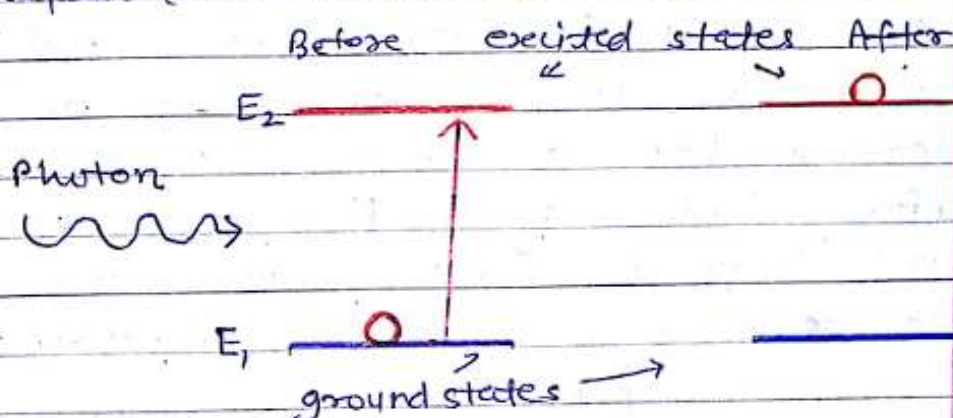 Before excited states After
E2
Photon
E1
ground states